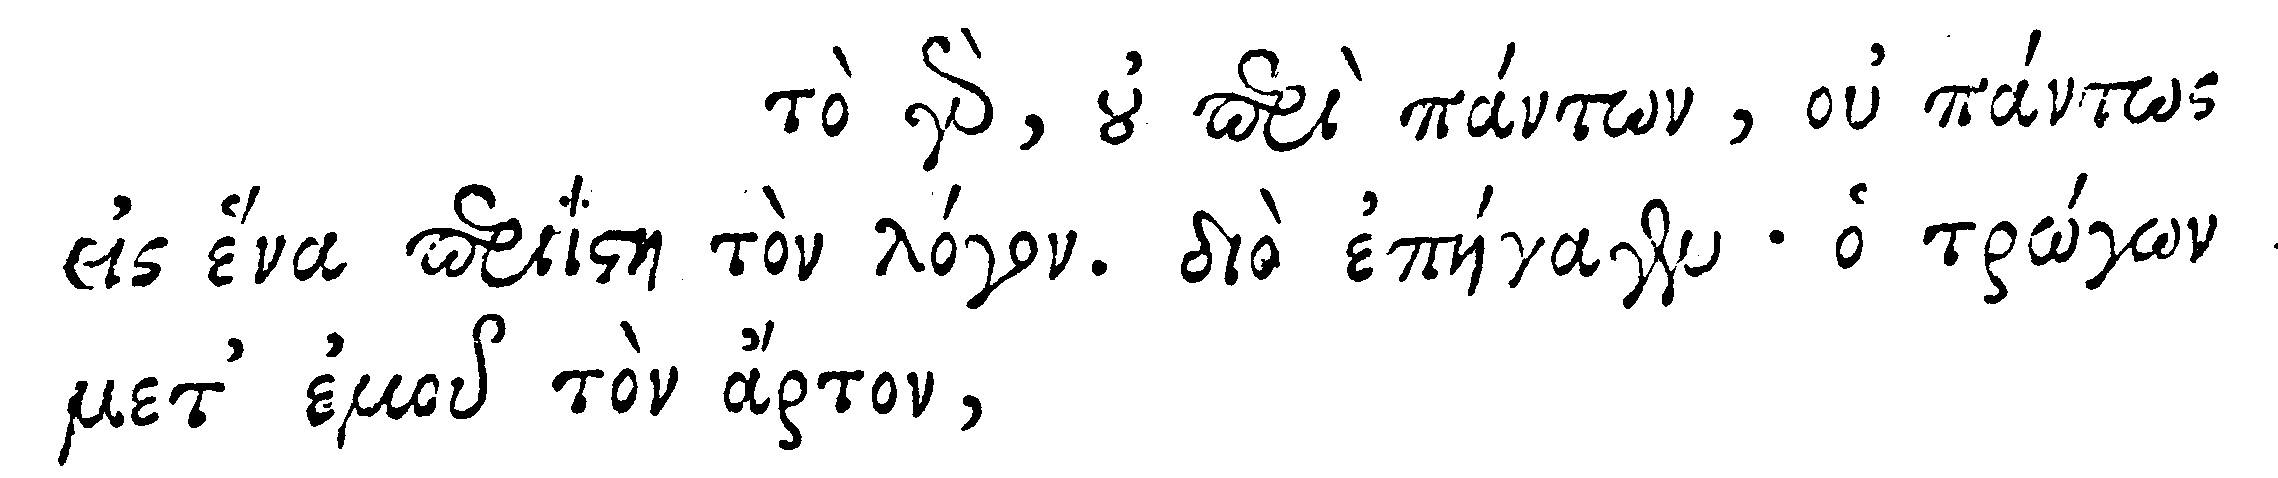 τὸ γὰρ, οὐ περὶ πάντων, οὐ πάντως
εἰς ἕνα περιΐστη τὸν λόγον. διὸ ἐπήγαγεν · ὁ τρώγων
μετ' ἐμοῦ τὸν ἄρτον,